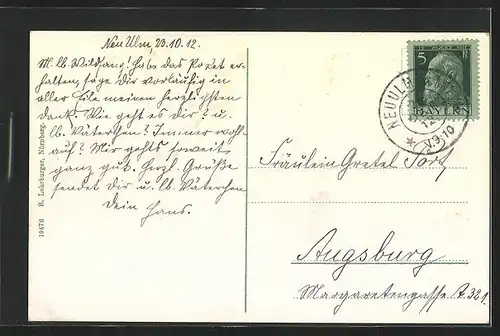 Neu Ulm, 23.10.12.
M. lb. Wildfang! Habe das Paket er-
halten, sage dir vorläufig in
aller Eile meinen herzlichsten
Dank. Wie geht es dir? u.
lb. Väterchen? Immer wohl-
auf? Mir gehts soweit
ganz gut. Herzl. Grüße
sendet dir u. lb. Väterchen
dein Hans.
Fräulein Gretel
Augsburg
Margaretengasse A. 321
5
BAYERN
NEUULM
19476 B. Lehrburger, Nürnberg.